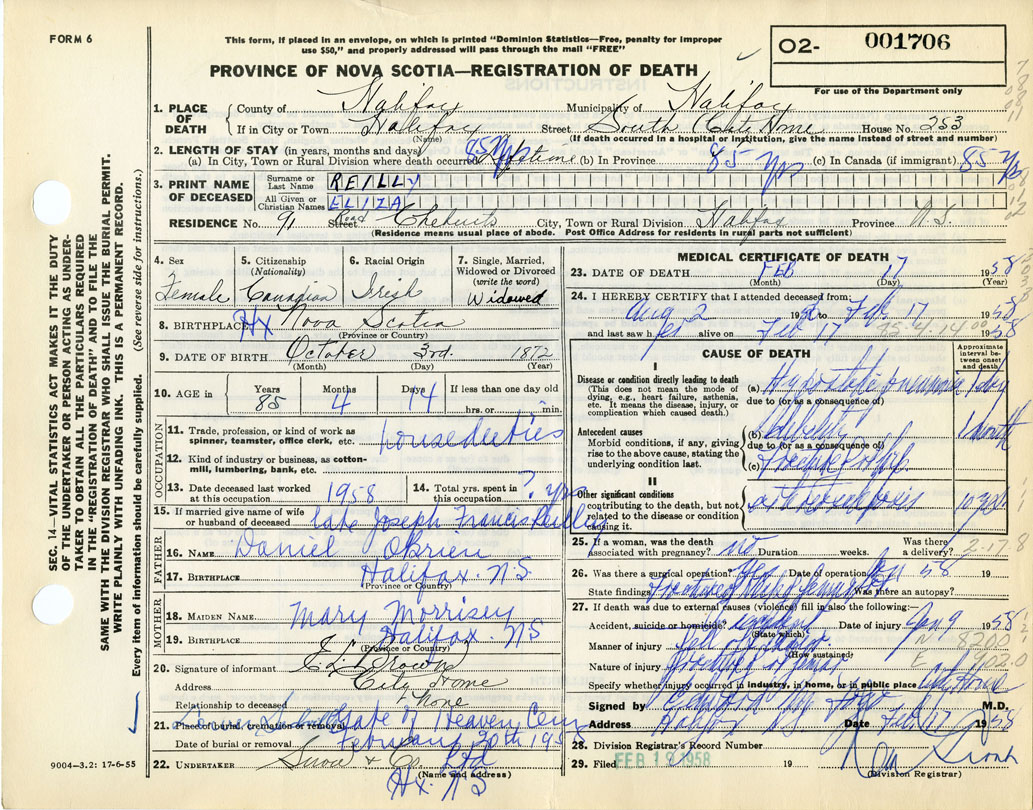 FORM 6
This form, if placed in an envelope, on which is printed "Dominion Statistics—Free, penalty for improper
use $50," and properly addressed will pass through the mail "FREE"
PROVINCE OF NOVA SCOTIA—REGISTRATION OF DEATH
O2- 001706
For use of the Department only
SEC. 14—VITAL STATISTICS ACT MAKES IT THE DUTY
OF THE UNDERTAKER OR PERSON ACTING AS UNDER-
TAKER TO OBTAIN ALL THE PARTICULARS REQUIRED
IN THE "REGISTRATION OF DEATH" AND TO FILE THE
SAME WITH THE DIVISION REGISTRAR WHO SHALL ISSUE THE BURIAL PERMIT.
WRITE PLAINLY WITH UNFADING INK. THIS IS A PERMANENT RECORD.
Every item of information should be carefully supplied. (See reverse side for instructions.)
1. PLACE OF DEATH County of Halifax Municipality of Halifax
If in City or Town Halifax Street South (City Home House No. 353
(Name) (If death occurred in a hospital or institution, give the name instead of street and number)
2. LENGTH OF STAY (in years, months and days)
(a) In City, Town or Rural Division where death occurred 85 yrs Lifetime (b) In Province 85 yrs (c) In Canada (if immigrant) 85 yrs
3. PRINT NAME OF DECEASED Surname or Last Name REILLY
All Given or Christian Names ELIZA
RESIDENCE No. 91 Street Road Chebucto City, Town or Rural Division Halifax Province N.S.
(Residence means usual place of abode. Post Office Address for residents in rural parts not sufficient)
4. Sex Female
5. Citizenship (Nationality) Canadian
6. Racial Origin Irish
7. Single, Married, Widowed or Divorced (write the word) Widowed
8. BIRTHPLACE Hx Nova Scotia
(Province or Country)
9. DATE OF BIRTH October 3rd. 1872
(Month) (Day) (Year)
10. AGE in Years 85 Months 4 Days 14 If less than one day old hrs. or min.
OCCUPATION
11. Trade, profession, or kind of work as spinner, teamster, office clerk, etc. house duties
12. Kind of industry or business, as cotton-mill, lumbering, bank, etc.
13. Date deceased last worked at this occupation 1958
14. Total yrs. spent in this occupation ? yrs
15. If married give name of wife or husband of deceased late Joseph Francis Reilly
FATHER
16. NAME Daniel O'Brien
17. BIRTHPLACE Halifax. N.S
(Province or Country)
MOTHER
18. MAIDEN NAME Mary Morrisey
19. BIRTHPLACE Halifax. NS
(Province or Country)
20. Signature of informant E L Brown
Address City Home
Relationship to deceased None
21. Place of burial, cremation or removal Gate of Heaven Cem
Date of burial or removal February 20th 195
22. UNDERTAKER Snow & Co. Ltd
(Name and address)
Hx. NS
9004—3.2: 17-6-55
MEDICAL CERTIFICATE OF DEATH
23. DATE OF DEATH FEB 17 1958
(Month) (Day) (Year)
24. I HEREBY CERTIFY that I attended deceased from:
Aug 2 19 to Feb. 17 1958
and last saw h er alive on Feb 17 1958
85-4-14
CAUSE OF DEATH
Approximate interval between onset and death
I
Disease or condition directly leading to death
(This does not mean the mode of dying, e.g., heart failure, asthenia, etc. It means the disease, injury, or complication which caused death.)
(a) Hypostatic pneumonia 1 day
due to (or as a consequence of)
Antecedent causes
Morbid conditions, if any, giving rise to the above cause, stating the underlying condition last.
(b) debility 1 Month
due to (or as a consequence of)
(c)
II
Other significant conditions
contributing to the death, but not related to the disease or condition causing it.
arteriosclerosis 10 years
25. If a woman, was the death associated with pregnancy? no Duration weeks. Was there a delivery?
2-17.8
26. Was there a surgical operation? Yes Date of operation Jan 58 19
State findings Was there an autopsy?
27. If death was due to external causes (violence) fill in also the following:—
Accident, suicide or homicide? Accident Date of injury Jan 9 1958
(State which)
Manner of injury
(How sustained)
N 820.0
Nature of injury
E 902.0
Specify whether injury occurred in industry, in home, or in public place City Home
Signed by M.D.
Address Halifax NS Date Feb 17 1958
28. Division Registrar's Record Number
29. Filed FEB 19 1958 19
(Division Registrar)